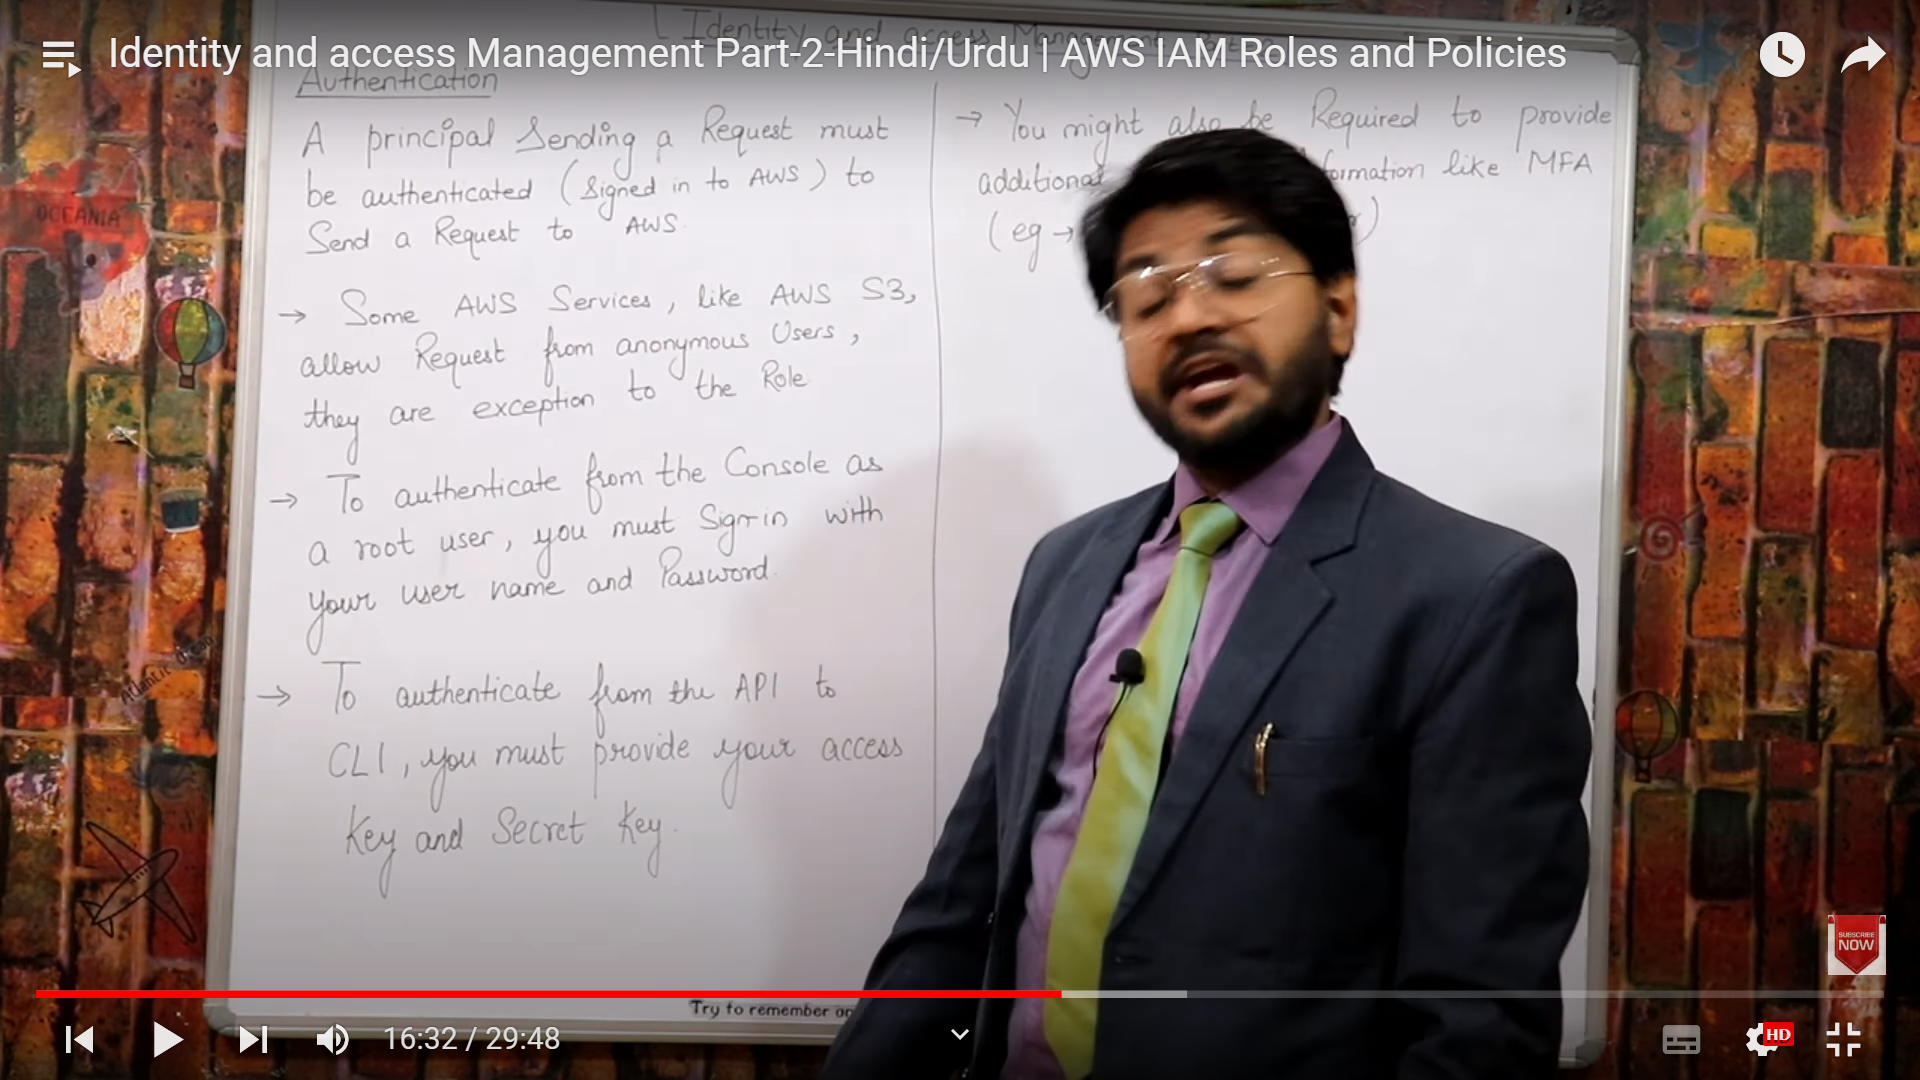 Identity and access Management Part-2-Hindi/Urdu | AWS IAM Roles and Policies
Identity and access Management
Authentication
A principal Sending a Request must
be authenticated (Signed in to AWS) to
Send a Request to AWS.
→ Some AWS Services, like AWS S3,
allow Request from anonymous Users,
they are exception to the Role
→ To authenticate from the Console as
a root user, you must Sign-in with
your user name and Password.
→ To authenticate from the API to
CLI, you must provide your access
Key and Secret Key.
→ You might also be Required to provide
additional like MFA
(eg →
OCEANIA
Atlantic Ocean
SUBSCRIBE
NOW
Try to remember
16:32 / 29:48
HD